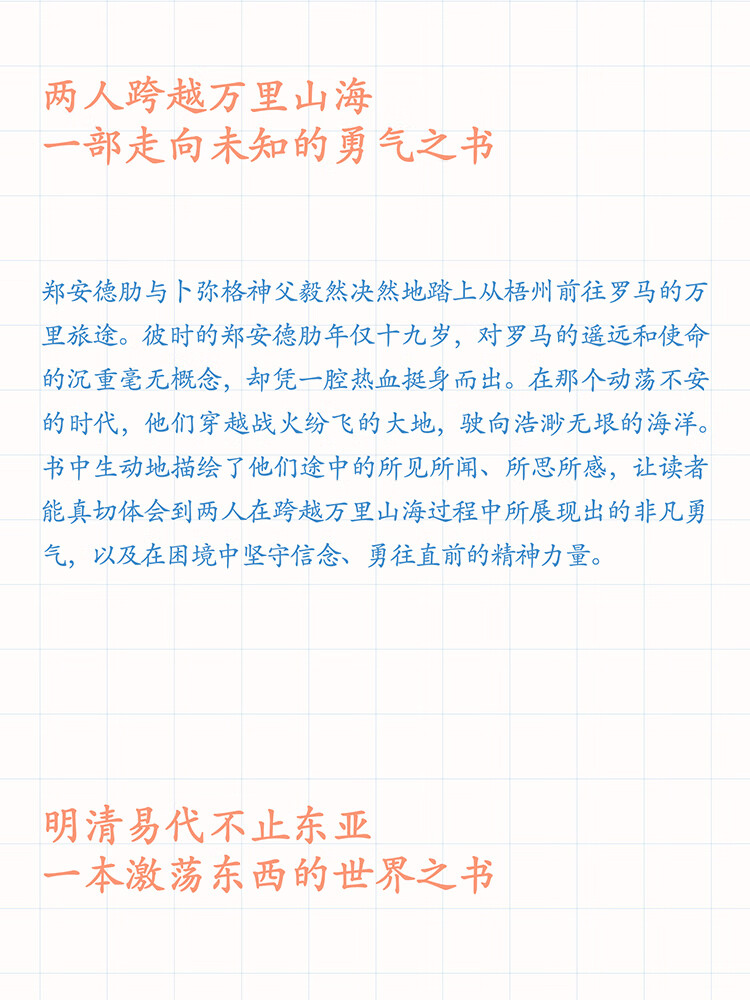 两人跨越万里山海
一部走向未知的勇气之书
郑安德肋与卜弥格神父毅然决然地踏上从梧州前往罗马的万
里旅途。彼时的郑安德肋年仅十九岁，对罗马的遥远和使命
的沉重毫无概念，却凭一腔热血挺身而出。在那个动荡不安
的时代，他们穿越战火纷飞的大地，驶向浩渺无垠的海洋。
书中生动地描绘了他们途中的所见所闻、所思所感，让读者
能真切体会到两人在跨越万里山海过程中所展现出的非凡勇
气，以及在困境中坚守信念、勇往直前的精神力量。
明清易代不止东亚
一本激荡东西的世界之书